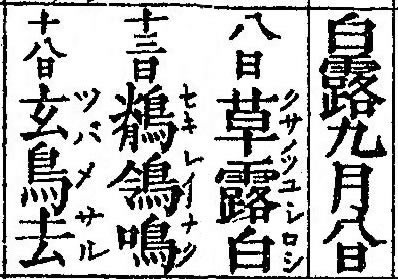 白露九月八日
八日草露白
クサノツユシロシ
十三日鶺鴒鳴
セキレイナク
十八日玄鳥去
ツバメサル